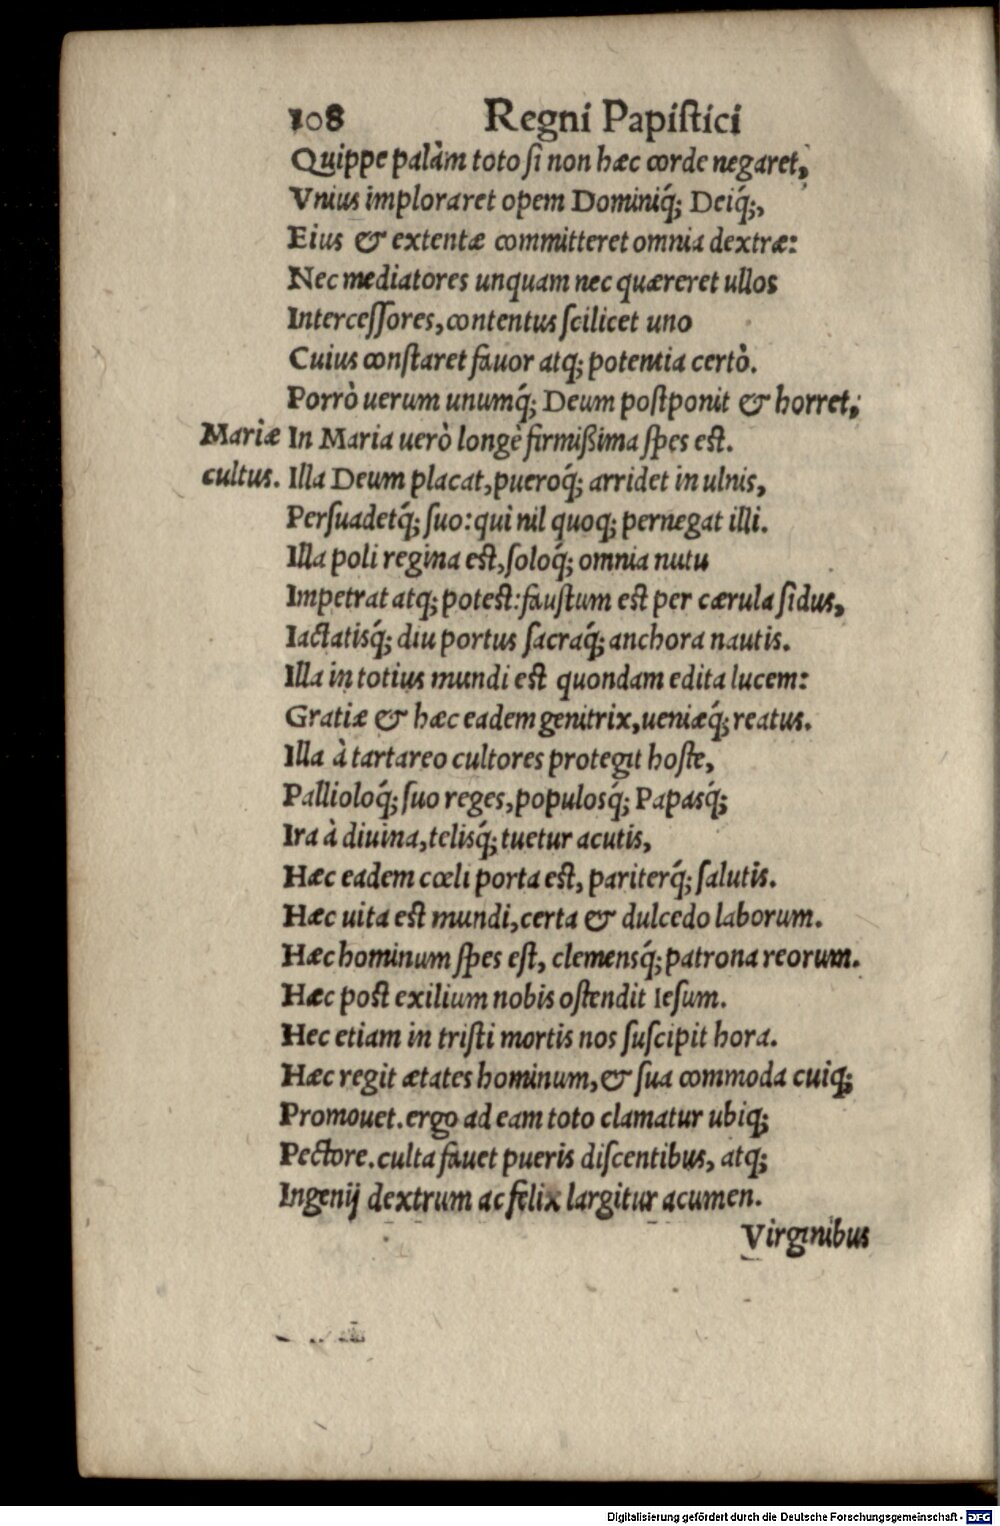 108 Regni Papiſtici
Quippe palàm toto ſi non hæc corde negaret,
Vnius imploraret opem Dominiq́; Deiq́;,
Eius & extentæ committeret omnia dextræ:
Nec mediatores unquam nec quæreret ullos
Interceſſores, contentus ſcilicet uno
Cuius conſtaret fauor atq; potentia certò.
Porrò uerum unumq́; Deum poſtponit & horret;
Mariæ In Maria uerò longè firmißima ſpes eſt.
cultus. Illa Deum placat, pueroq́; arridet in ulnis,
Perſuadetq́; ſuo: qui nil quoq; pernegat illi.
Illa poli regina eſt, ſoloq́; omnia nutu
Impetrat atq; poteſt: fauſtum eſt per cærula ſidus,
Iactatisq́; diu portus ſacraq́; anchora nautis.
Illa in totius mundi eſt quondam edita lucem:
Gratiæ & hæc eadem genitrix, ueniæq́; reatus.
Illa à tartareo cultores protegit hoſte,
Pallioloq́; ſuo reges, populosq́; Papasq́;
Ira à diuina, telisq́; tuetur acutis,
Hæc eadem cœli porta eſt, pariterq́; ſalutis.
Hæc uita eſt mundi, certa & dulcedo laborum.
Hæc hominum ſpes eſt, clemensq́; patrona reorum.
Hæc poſt exilium nobis oſtendit Ieſum.
Hec etiam in triſti mortis nos ſuſcipit hora.
Hæc regit ætates hominum, & ſua commoda cuiq;
Promouet. ergo ad eam toto clamatur ubiq;
Pectore. culta fauet pueris diſcentibus, atq;
Ingenij dextrum ac felix largitur acumen.
Virginibus
Digitalisierung gefördert durch die Deutsche Forschungsgemeinschaft - DFG